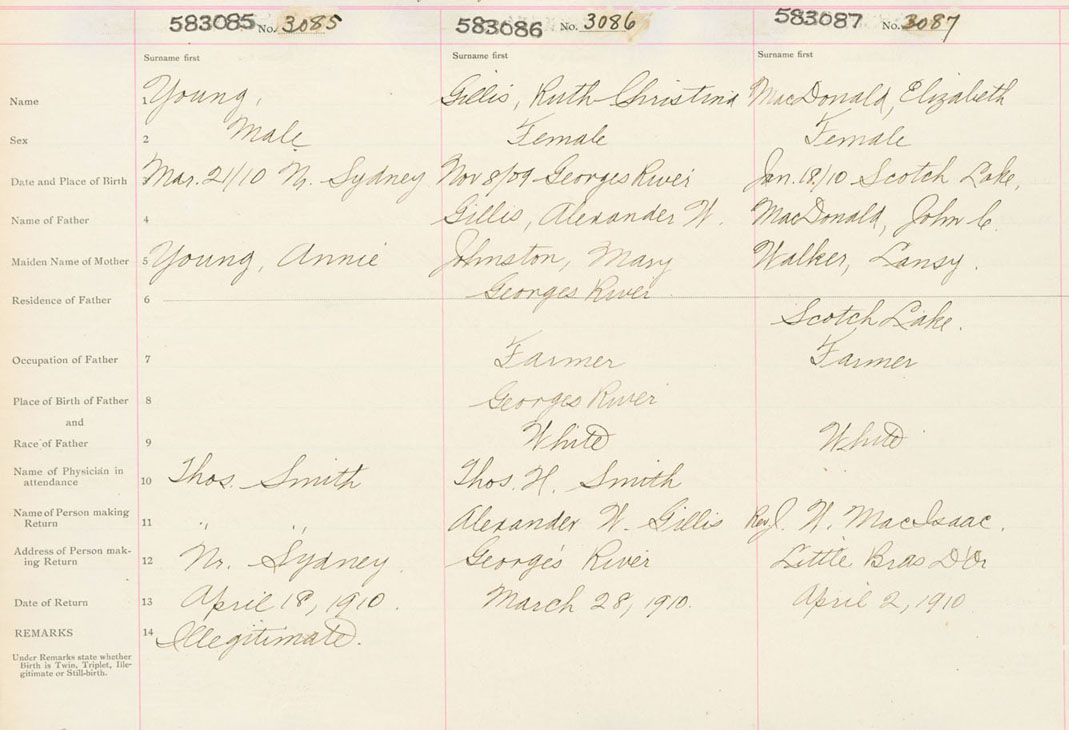 583085 No. 3085 583086 No. 3086 583087 No. 3087
Surname first Surname first Surname first
Name 1 Young, Gillis, Ruth Christina MacDonald, Elizabeth
Sex 2 Male Female Female
Date and Place of Birth 3 Mar. 21/10 N. Sydney Nov 8/09 Georges River Jan. 18/10 Scotch Lake,
Name of Father 4 Gillis, Alexander W. MacDonald, John C.
Maiden Name of Mother 5 Young, Annie Johnston, Mary Walker, Lansy.
Residence of Father 6 Georges River Scotch Lake.
Occupation of Father 7 Farmer Farmer
Place of Birth of Father 8 Georges River
and
Race of Father 9 White White
Name of Physician in
attendance 10 Thos. Smith Thos. H. Smith
Name of Person making
Return 11 " " Alexander W. Gillis Rev J. W. MacIsaac.
Address of Person mak-
ing Return 12 Nr. Sydney George's River Little Bras D'Or
Date of Return 13 April 18, 1910. March 28, 1910. April 2, 1910
REMARKS 14 Illegitimate.
Under Remarks state whether
Birth is Twin, Triplet, Ille-
gitimate or Still-birth.